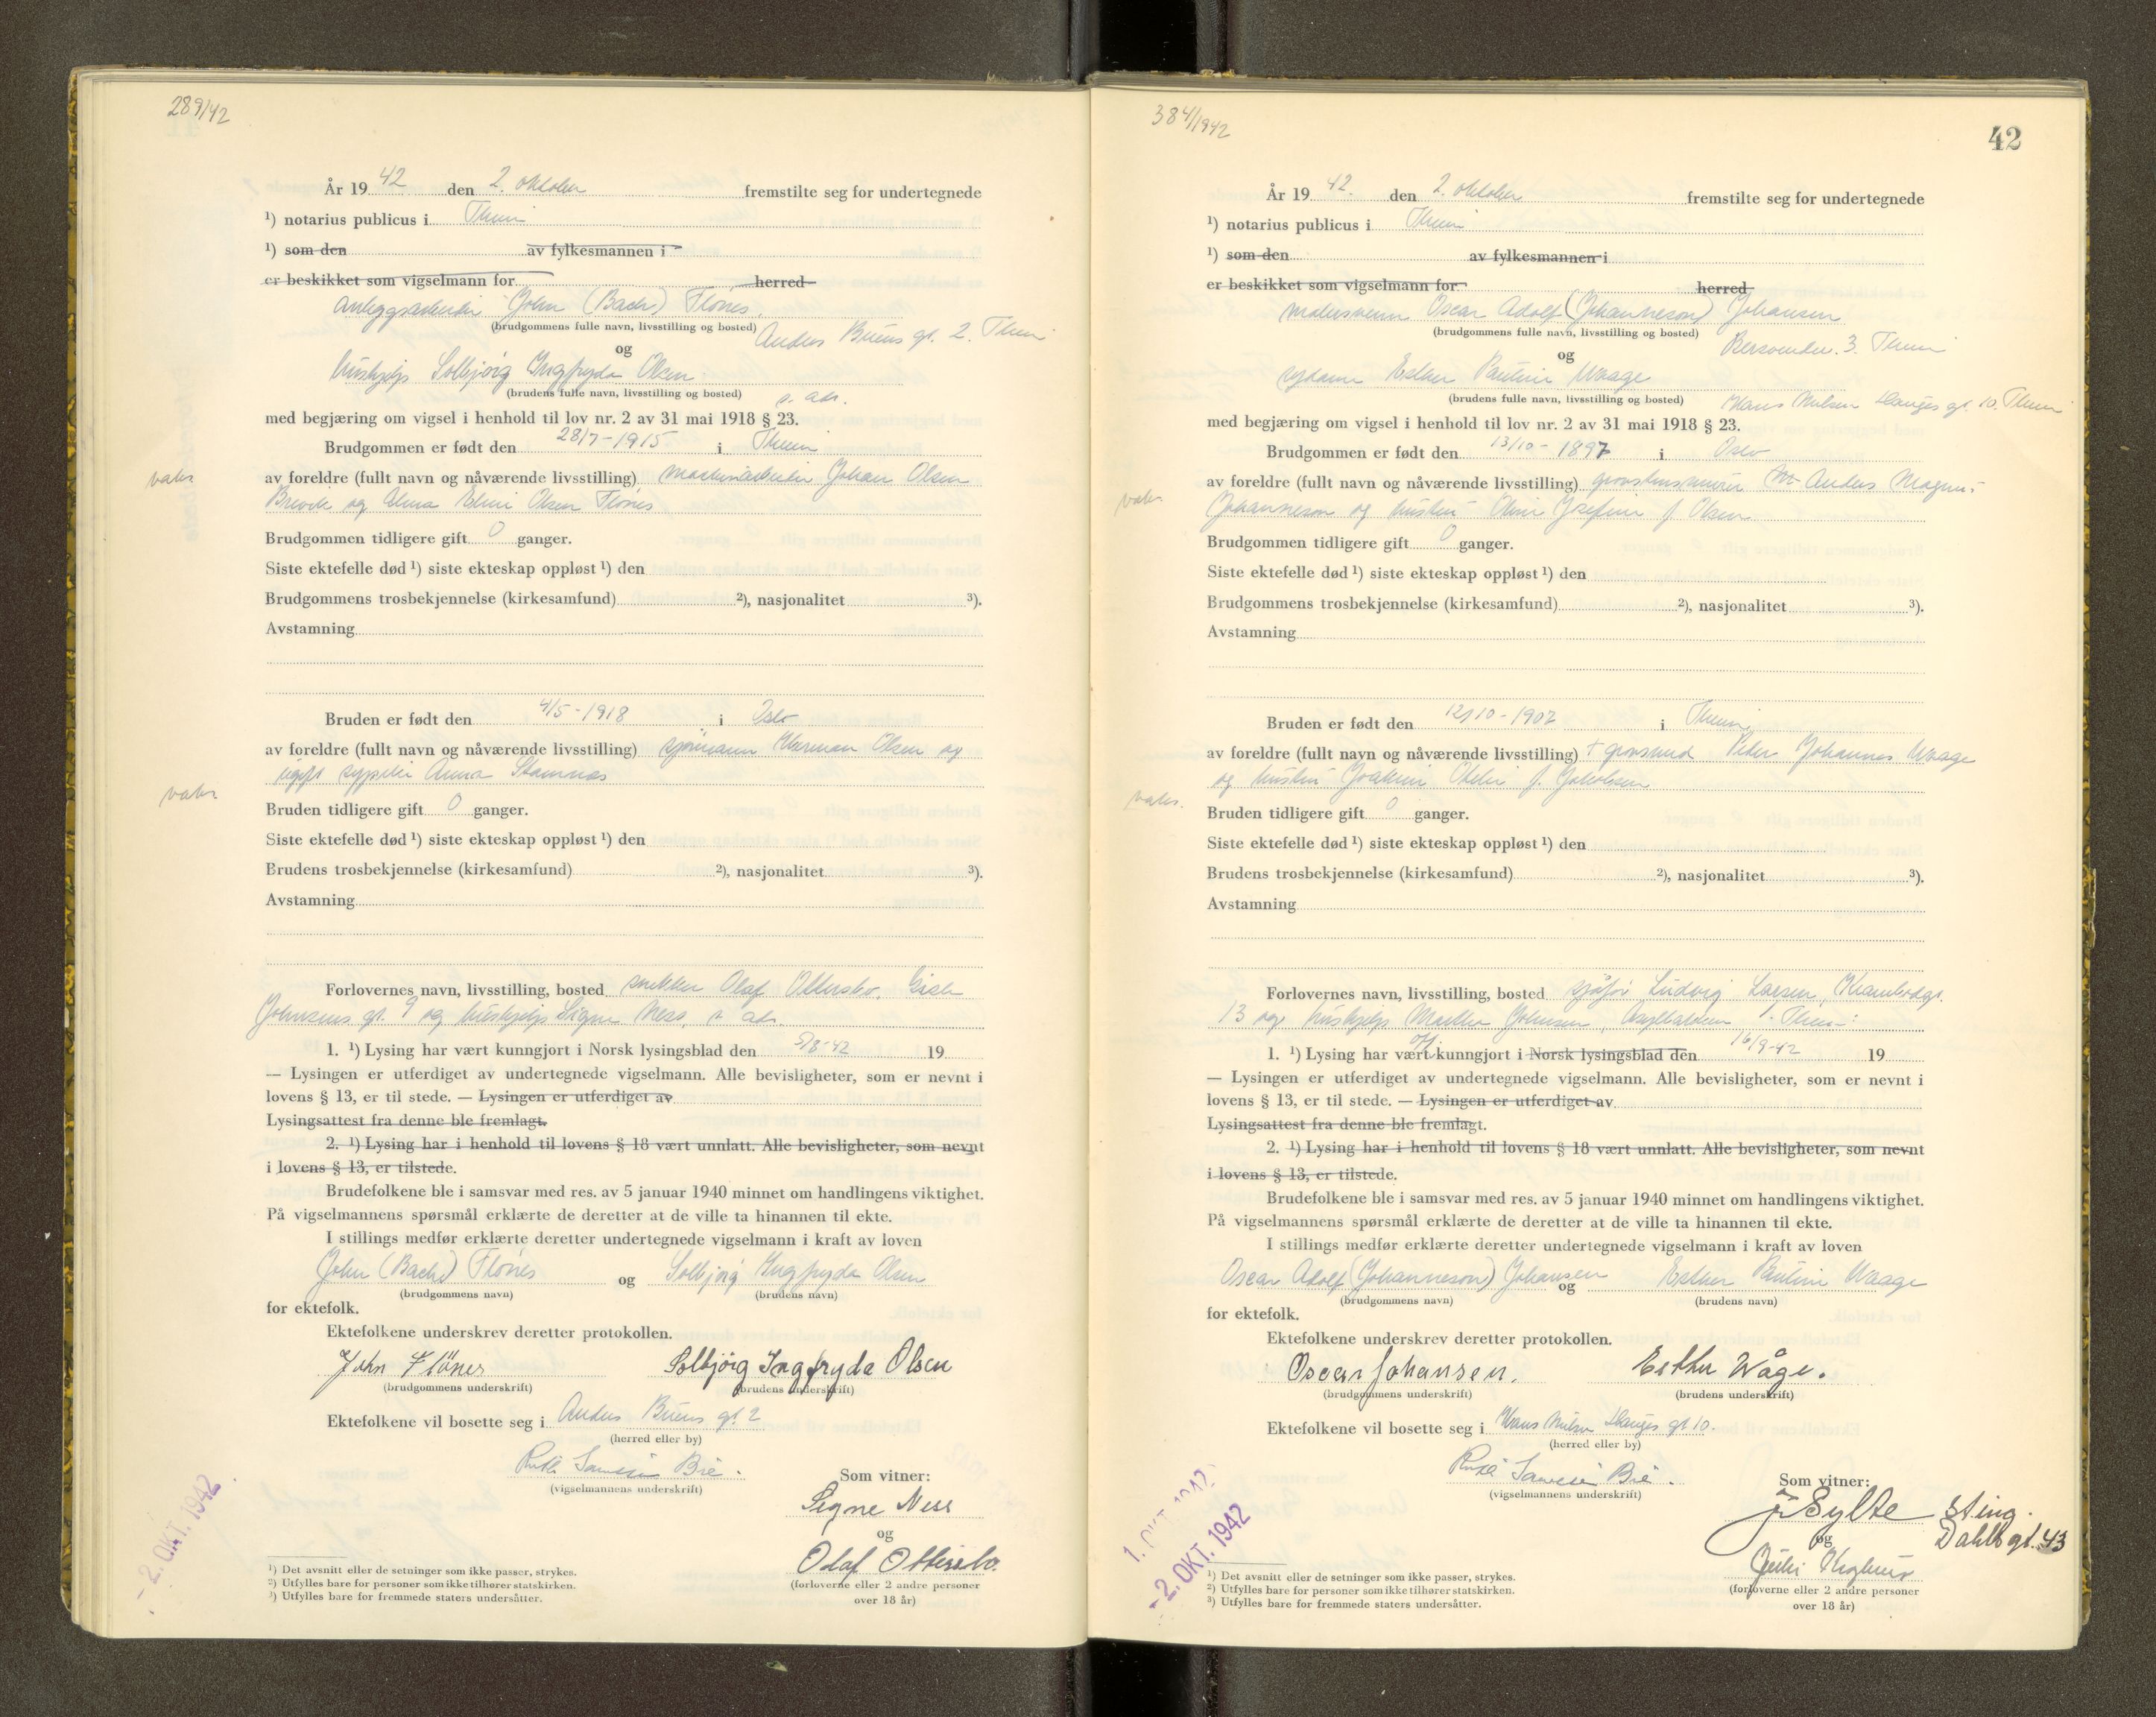 289/42
År 19 42 den 2. oktober fremstilte seg for undertegnede
¹) notarius publicus i Theim
¹) som den av fylkesmannen i
er beskikket som vigselmann for herred
Anleggsarbeider John (Bach) Flønes.
(brudgommens fulle navn, livsstilling og bosted) Anders Buens gt. 2. Theim
og
hushjelp Solbjørg Ingfryda Olsen
(brudens fulle navn, livsstilling og bosted) s. adr.
med begjæring om vigsel i henhold til lov nr. 2 av 31 mai 1918 § 23.
Brudgommen er født den 28/7-1915 i Theim
vaks.
av foreldre (fullt navn og nåværende livsstilling) maskinarbeider Johan Olsen
Brevik og Alma Elvine Olsen Flønes
Brudgommen tidligere gift 0 ganger.
Siste ektefelle død ¹) siste ekteskap oppløst ¹) den
Brudgommens trosbekjennelse (kirkesamfund) ²), nasjonalitet ³).
Avstamning
Bruden er født den 4/5-1918 i Oslo
av foreldre (fullt navn og nåværende livsstilling) sjømann Herman Olsen og
ugift sypike Anna Stamnas
vaks.
Bruden tidligere gift 0 ganger.
Siste ektefelle død ¹) siste ekteskap oppløst ¹) den
Brudens trosbekjennelse (kirkesamfund) ²), nasjonalitet ³).
Avstamning
Forlovernes navn, livsstilling, bosted snekker Olaf Ottersbo, Gisle
Johnsens gt. 9 og hushjelp Signe Ness, s. adr.
1. ¹) Lysing har vært kunngjort i Norsk lysingsblad den 5/8-42 19
— Lysingen er utferdiget av undertegnede vigselmann. Alle bevisligheter, som er nevnt i
lovens § 13, er til stede. — Lysingen er utferdiget av
Lysingsattest fra denne ble fremlagt.
2. ¹) Lysing har i henhold til lovens § 18 vært unnlatt. Alle bevisligheter, som nevnt
i lovens § 13, er tilstede.
Brudefolkene ble i samsvar med res. av 5 januar 1940 minnet om handlingens viktighet.
På vigselmannens spørsmål erklærte de deretter at de ville ta hinannen til ekte.
I stillings medfør erklærte deretter undertegnede vigselmann i kraft av loven
John (Bach) Flønes og Solbjørg Ingfryda Olsen
(brudgommens navn) (brudens navn)
for ektefolk.
Ektefolkene underskrev deretter protokollen.
John Flönes Solbjörg Ingfryda Olsen
(brudgommens underskrift) (brudens underskrift)
Ektefolkene vil bosette seg i Anders Buens gt. 2
(herred eller by)
(vigselmannens underskrift)
Som vitner:
Signe Ness
og
Olaf Ottersbo.
(forloverne eller 2 andre personer
over 18 år)
- 2. OKT. 1942
¹) Det avsnitt eller de setninger som ikke passer, strykes.
²) Utfylles bare for personer som ikke tilhører statskirken.
³) Utfylles bare for fremmede staters undersåtter.
384/1942
42
År 19 42. den 2. oktober fremstilte seg for undertegnede
¹) notarius publicus i Theim
¹) som den av fylkesmannen i
er beskikket som vigselmann for herred
malersvenn Oscar Adolf (Johanneson) Johansen
(brudgommens fulle navn, livsstilling og bosted) 3. Theim
og
sydame Esther Pauline Waage
(brudens fulle navn, livsstilling og bosted) Hans Nielsen Hauges gt. 10. Theim
med begjæring om vigsel i henhold til lov nr. 2 av 31 mai 1918 § 23.
Brudgommen er født den 13/10-1897 i Oslo
av foreldre (fullt navn og nåværende livsstilling) Anders Magnus
vaks.
Johanneson og hustru Oline Josefine f. Olsen
Brudgommen tidligere gift 0 ganger.
Siste ektefelle død ¹) siste ekteskap oppløst ¹) den
Brudgommens trosbekjennelse (kirkesamfund) ²), nasjonalitet ³).
Avstamning
Bruden er født den 12/10-1902 i Theim
av foreldre (fullt navn og nåværende livsstilling) + grovsmed Peder Johannes Waage
og hustru f. Jakobsen
vaks.
Bruden tidligere gift 0 ganger.
Siste ektefelle død ¹) siste ekteskap oppløst ¹) den
Brudens trosbekjennelse (kirkesamfund) ²), nasjonalitet ³).
Avstamning
Forlovernes navn, livsstilling, bosted sjåfør Ludvig Larsen, Krambodgt.
13 og hushjelp Martha Johnsen, Asylbakken 1. Theim
1. ¹) Lysing har vært off. kunngjort i Norsk lysingsblad den 16/9-42 19
— Lysingen er utferdiget av undertegnede vigselmann. Alle bevisligheter, som er nevnt i
lovens § 13, er til stede. — Lysingen er utferdiget av
Lysingsattest fra denne ble fremlagt.
2. ¹) Lysing har i henhold til lovens § 18 vært unnlatt. Alle bevisligheter, som nevnt
i lovens § 13, er tilstede.
Brudefolkene ble i samsvar med res. av 5 januar 1940 minnet om handlingens viktighet.
På vigselmannens spørsmål erklærte de deretter at de ville ta hinannen til ekte.
I stillings medfør erklærte deretter undertegnede vigselmann i kraft av loven
Oscar Adolf (Johanneson) Johansen og Esther Pauline Waage
(brudgommens navn) (brudens navn)
for ektefolk.
Ektefolkene underskrev deretter protokollen.
Oscar Johansen. Esther Wåge.
(brudgommens underskrift) (brudens underskrift)
Ektefolkene vil bosette seg i Hans Nielsen Hauges gt. 10.
(herred eller by)
(vigselmannens underskrift)
Som vitner:
Sylte
Dahlsgt. 43
og
(forloverne eller 2 andre personer
over 18 år)
1. OKT. 1942
- 2. OKT. 1942
¹) Det avsnitt eller de setninger som ikke passer, strykes.
²) Utfylles bare for personer som ikke tilhører statskirken.
³) Utfylles bare for fremmede staters undersåtter.